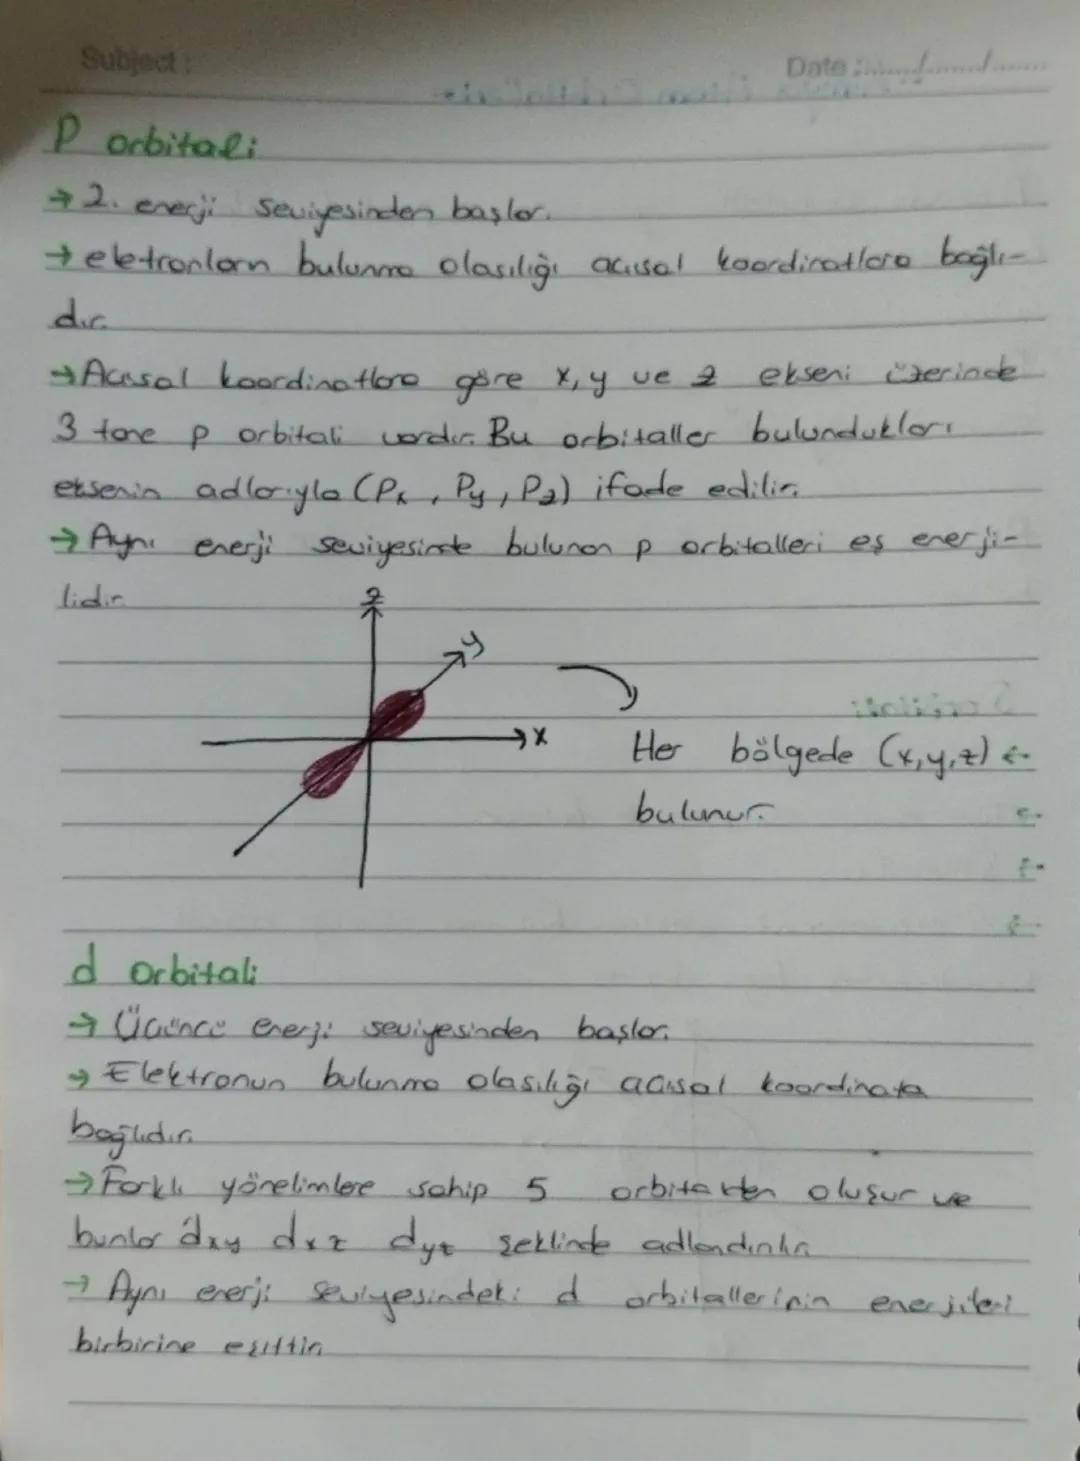 Subject:
Date:
P orbitali
→ 2. enerji seviyesinden başlar.
→ eletronların bulunma olasılığı açısal koordinatlara bağlı-
dır.
→ Açısal koordinatlara göre x, y ve z ekseni üzerinde
3 tane p orbitali vardır. Bu orbitaller bulundukları
eksenin adlarıyla (Px, Py, Pz) ifade edilir.
→ Aynı enerji seviyesinde bulunan p orbitalleri eş enerji-
lidir
z
y
x
Her bölgede (x,y,z)
bulunur.
d orbitali
→ Üçüncü enerji seviyesinden başlar.
→ Elektronun bulunma olasılığı açısal koordinata
bağlıdır.
→ Farklı yönelimlere sahip 5 oluşur ve
bunlar dxy dxz dyz şeklinde adlandırılır
→ Aynı enerji seviyesindeki d orbitallerinin enerjileri
birbirine eşittir